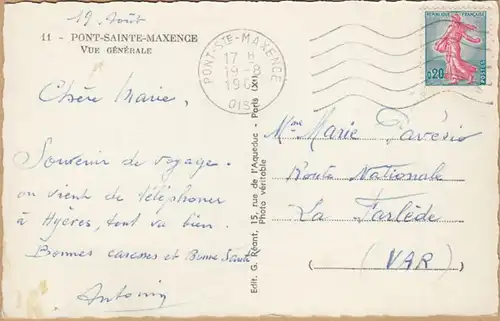 19 Août
11 - PONT-SAINTE-MAXENCE
VUE GÉNÉRALE
Chère Marie,
Souvenir de voyage.
on vient de téléphoner
à Hyères, tout va bien.
Bonnes caresses et Bonne Santé
Antonin
Edit. G. Réant, 15, rue de l'Aqueduc - Paris (X)
Photo véritable
PONT-STE-MAXENCE
17 H
19-8
OISE
REPUBLIQUE FRANÇAISE
0,20
POSTES
Mme Marie Pavésio
Route Nationale
La Farlède
(VAR)